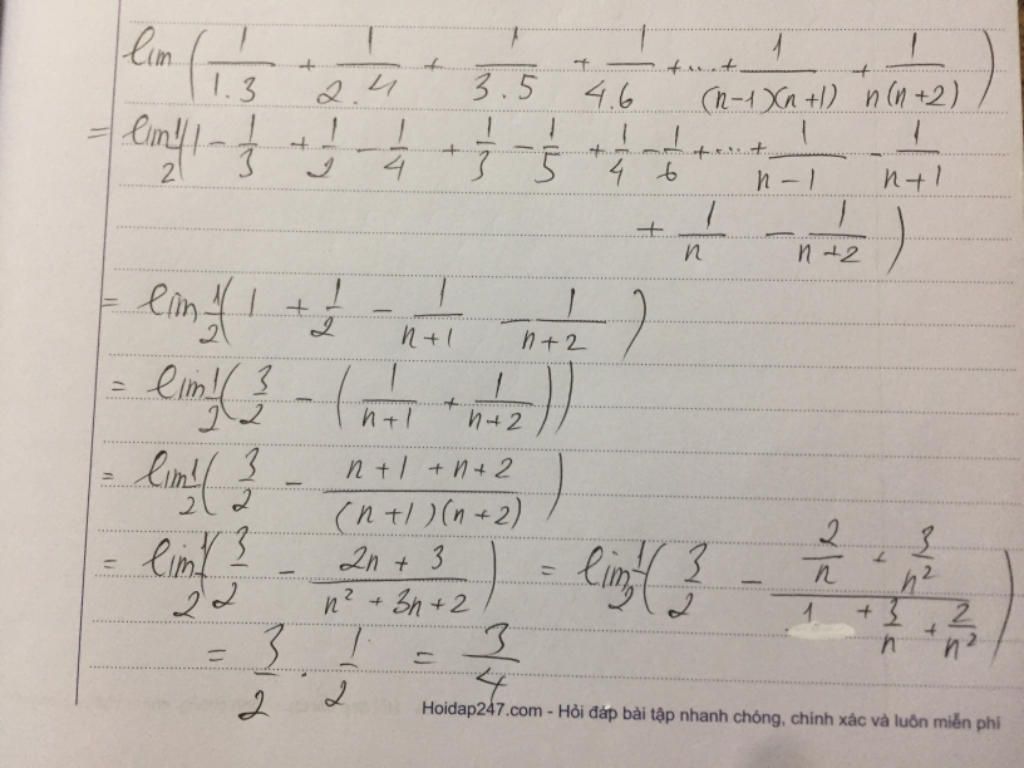 lim ( 1/1.3 + 1/2.4 + 1/3.5 + 1/4.6 + ... + 1/(n-1)(n+1) + 1/n(n+2) )
= lim 1/2 ( 1 - 1/3 + 1/2 - 1/4 + 1/3 - 1/5 + 1/4 - 1/6 + ... + 1/n-1 - 1/n+1
+ 1/n - 1/n+2 )
= lim 1/2 ( 1 + 1/2 - 1/n+1 - 1/n+2 )
= lim 1/2 ( 3/2 - ( 1/n+1 + 1/n+2 ) )
= lim 1/2 ( 3/2 - n+1+n+2/(n+1)(n+2) )
= lim 1/2 ( 3/2 - 2n+3/n²+3n+2 ) = lim 1/2 ( 3/2 - 2/n + 3/n² / 1 + 3/n + 2/n² )
= 3/2 . 1/2 = 3/4
Hoidap247.com - Hỏi đáp bài tập nhanh chóng, chính xác và luôn miễn phí